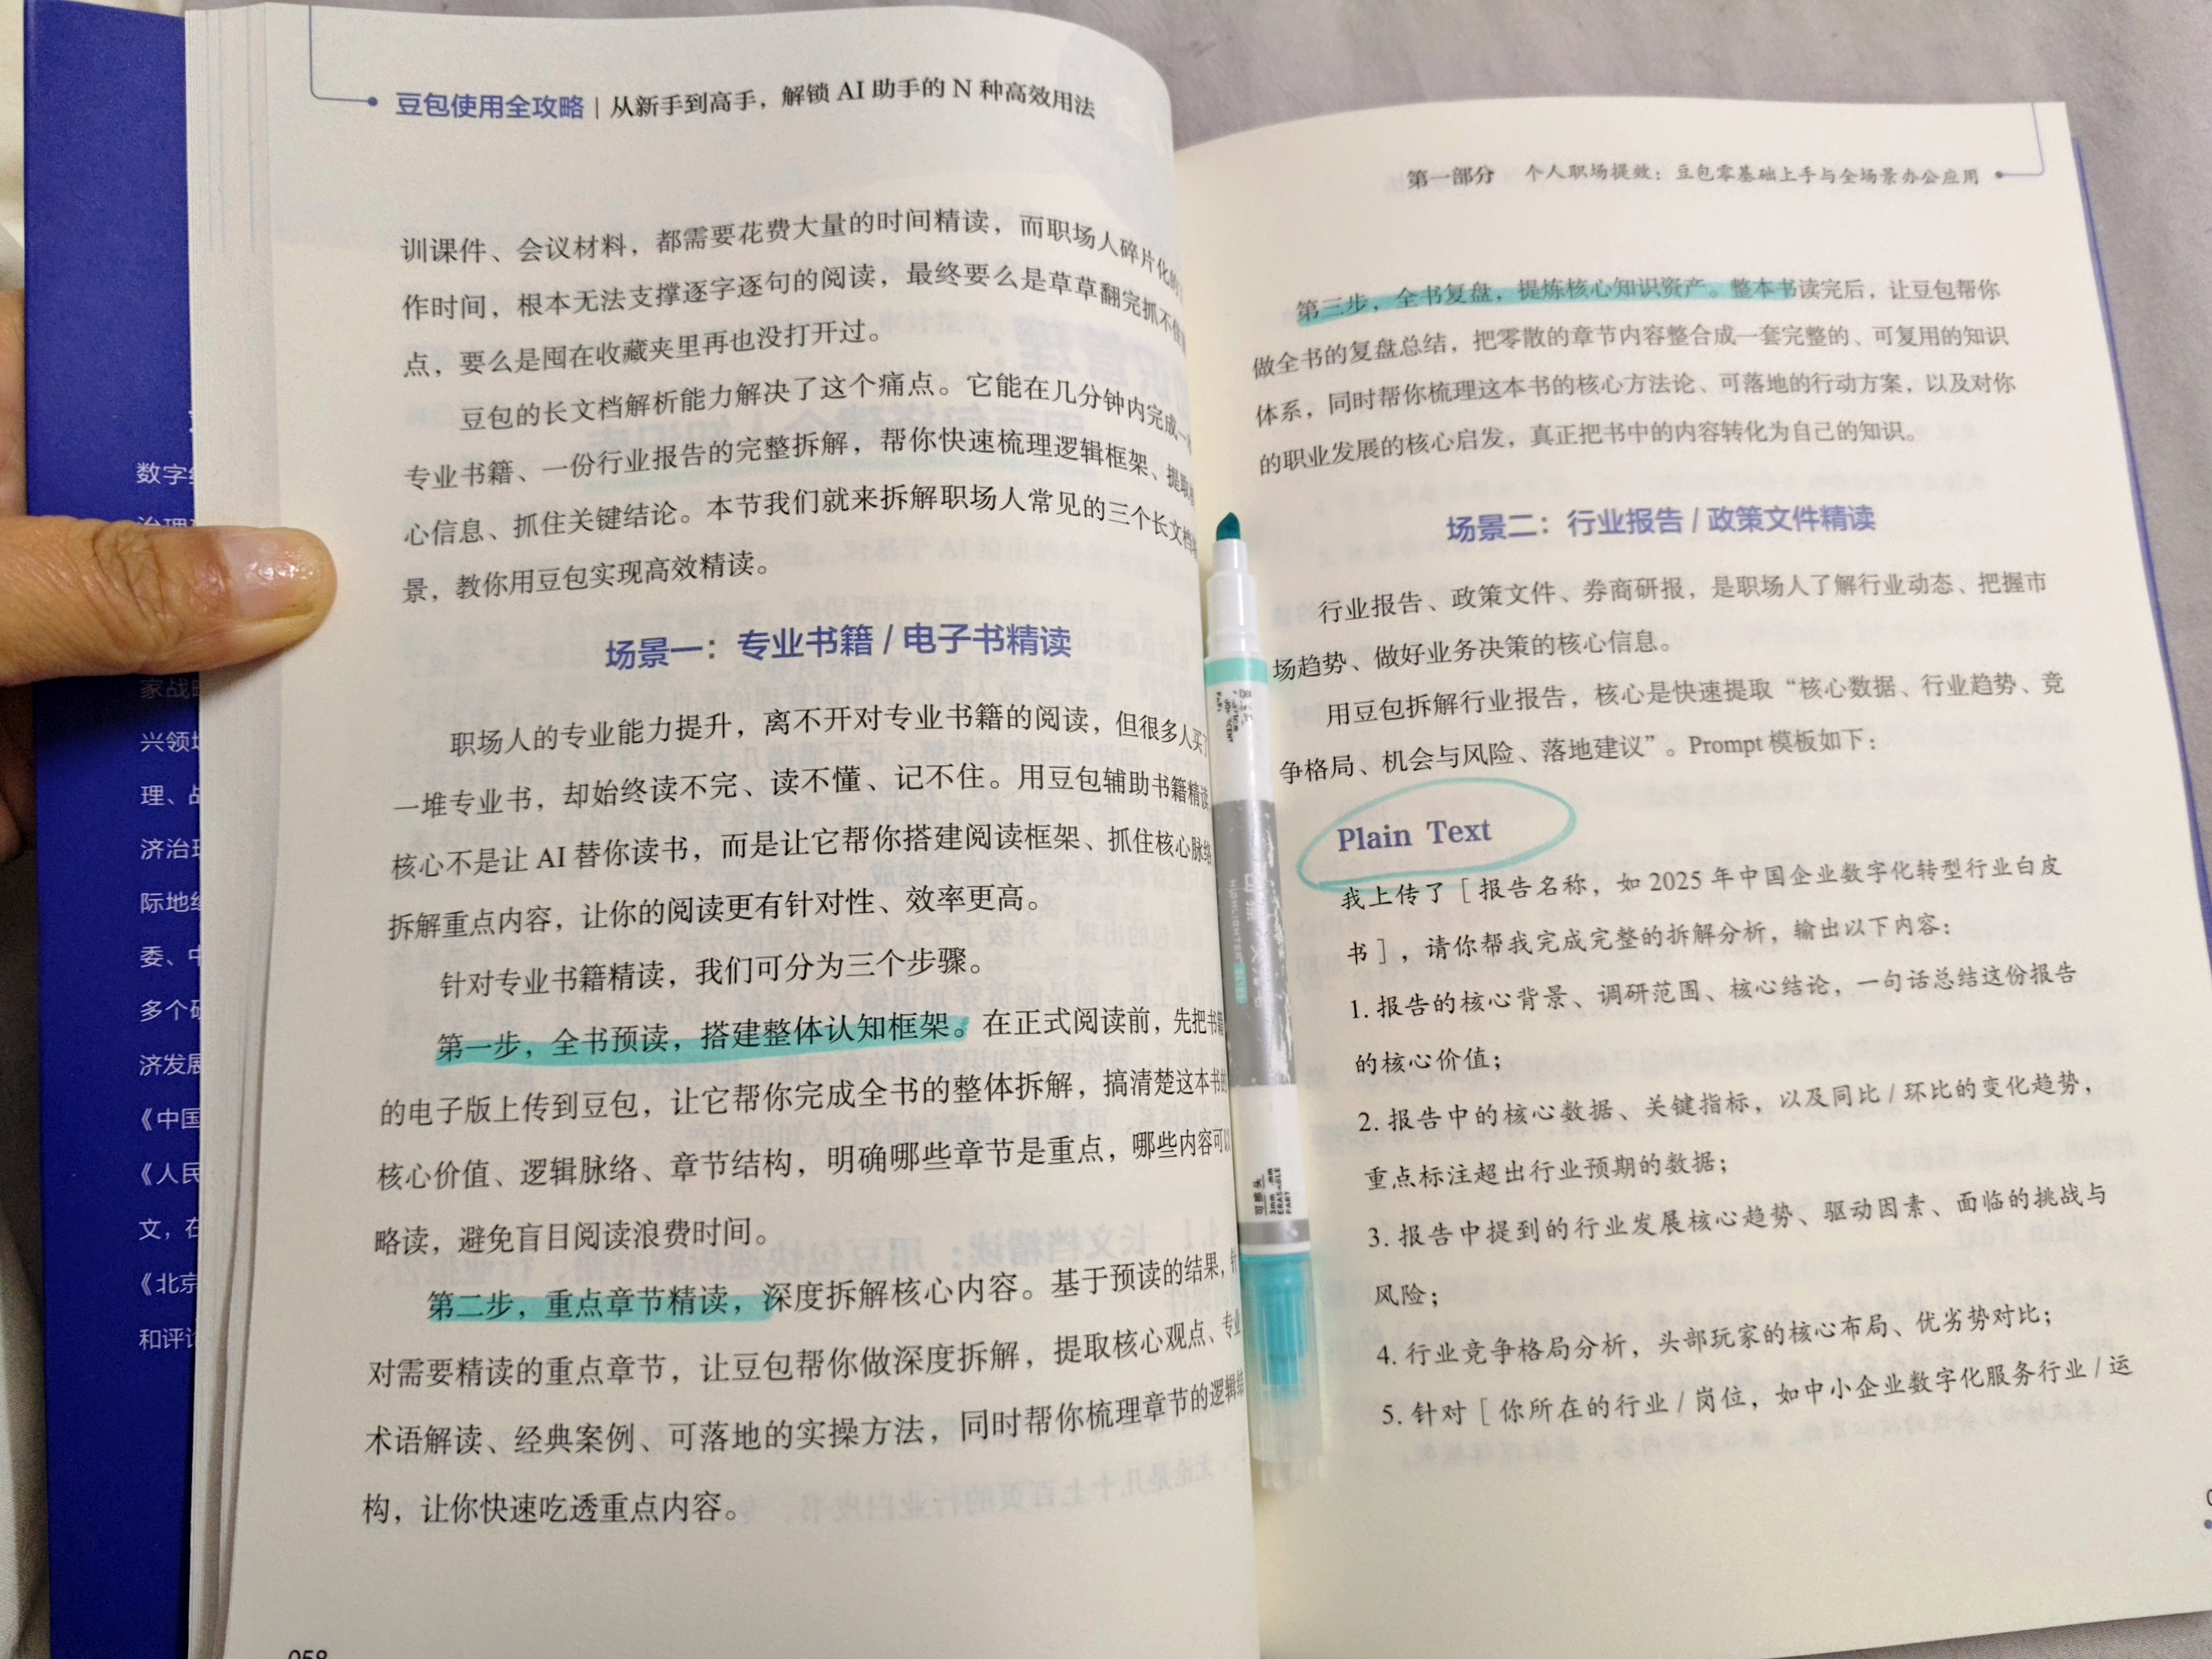 豆包使用全攻略 | 从新手到高手，解锁 AI 助手的 N 种高效用法
训课件、会议材料，都需要花费大量的时间精读，而职场人碎片化的
作时间，根本无法支撑逐字逐句的阅读，最终要么是草草翻完抓不住
点，要么是囤在收藏夹里再也没打开过。
豆包的长文档解析能力解决了这个痛点。它能在几分钟内完成一
专业书籍、一份行业报告的完整拆解，帮你快速梳理逻辑框架、提取
心信息、抓住关键结论。本节我们就来拆解职场人常见的三个长文档
景，教你用豆包实现高效精读。
场景一：专业书籍 / 电子书精读
职场人的专业能力提升，离不开对专业书籍的阅读，但很多人买了
一堆专业书，却始终读不完、读不懂、记不住。用豆包辅助书籍精读
核心不是让 AI 替你读书，而是让它帮你搭建阅读框架、抓住核心脉络
拆解重点内容，让你的阅读更有针对性、效率更高。
针对专业书籍精读，我们可分为三个步骤。
第一步，全书预读，搭建整体认知框架。在正式阅读前，先把书籍
的电子版上传到豆包，让它帮你完成全书的整体拆解，搞清楚这本书的
核心价值、逻辑脉络、章节结构，明确哪些章节是重点，哪些内容可以
略读，避免盲目阅读浪费时间。
第二步，重点章节精读，深度拆解核心内容。基于预读的结果，针
对需要精读的重点章节，让豆包帮你做深度拆解，提取核心观点、专业
术语解读、经典案例、可落地的实操方法，同时帮你梳理章节的逻辑结
构，让你快速吃透重点内容。
058
第一部分 个人职场提效：豆包零基础上手与全场景办公应用
第三步，全书复盘，提炼核心知识资产。整本书读完后，让豆包帮你
做全书的复盘总结，把零散的章节内容整合成一套完整的、可复用的知识
体系，同时帮你梳理这本书的核心方法论、可落地的行动方案，以及对你
的职业发展的核心启发，真正把书中的内容转化为自己的知识。
场景二：行业报告 / 政策文件精读
行业报告、政策文件、券商研报，是职场人了解行业动态、把握市
场趋势、做好业务决策的核心信息。
用豆包拆解行业报告，核心是快速提取“核心数据、行业趋势、竞
争格局、机会与风险、落地建议”。Prompt 模板如下：
Plain Text
我上传了［报告名称，如 2025 年中国企业数字化转型行业白皮
书］，请你帮我完成完整的拆解分析，输出以下内容：
1. 报告的核心背景、调研范围、核心结论，一句话总结这份报告
的核心价值；
2. 报告中的核心数据、关键指标，以及同比 / 环比的变化趋势，
重点标注超出行业预期的数据；
3. 报告中提到的行业发展核心趋势、驱动因素、面临的挑战与
风险；
4. 行业竞争格局分析，头部玩家的核心布局、优劣势对比；
5. 针对［你所在的行业 / 岗位，如中小企业数字化服务行业 / 运
数字
兴领域
理、
济治理
际地
委、中
多个
济发展
《中国
《人民
文，在
《北京
和评论